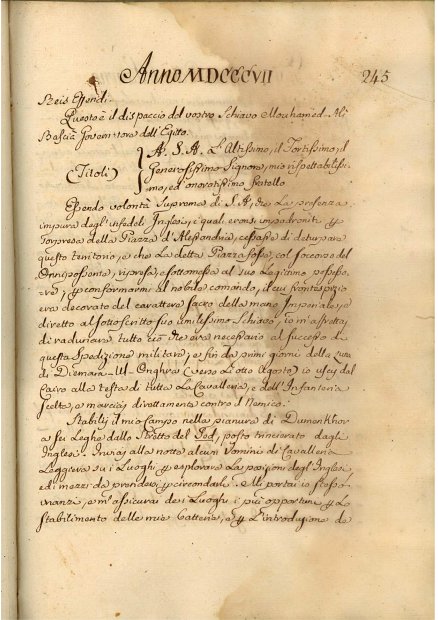 Anno MDCCCVII 245
Reis Effendi.
Questo è il dispaccio del vostro Schiavo Mouhamed Ali
Bascià Governatore dell'Egitto.
(Titoli) A. S. A. L'Altissimo, il Fortissimo, il
Generosissimo Signore, mio rispettabilissi-
mo, ed onoratissimo fratello
Essendo volontà Suprema di S. A., che La presenza
impura degl'infedeli Inglesi, i quali eransi impadroniti p
sorpresa della Piazza d'Alessandria, cessasse di deturpare
questo territorio, e che La detta Piazza fosse, col soccorso dell
Onnipossente, ripresa, e sottomessa al suo Legittimo possesso-
re; p conformarmi al nobile comando, il cui frontespizio
era decorato del carattere sacro della mano Imperiale, e
diretto al sottoscritto suo umilissimo Schiavo, io m'affrettai
di radunare tutto ciò che era necessario al successo di
questa Spedizione militare, e fin da primi giorni della Luna
di Diemara-Ul-Onghra (verso Li otto Agosto) io uscij dal
Cairo alla testa di tutta La Cavalleria, e dell'Infanteria
scelta, e marciaj direttamente contro il Nemico.
Stabilij il mio Campo nella pianura di Dumenkhor
a sei Leghe dallo Stretto del Sed, posto trincierato dagli
Inglesi. Inviaj alla notte alcuni Uomini di Cavalleria
Leggiera su i Luoghi p esplorare La posizione degl'Inglesi,
ed i mezzi da prendersi p circondarli. Mi portai io stesso
innanzi, e m'assicurai de i Luoghi i più opportuni p Lo
stabilimento delle mie Batterie, e p L'introduzione de